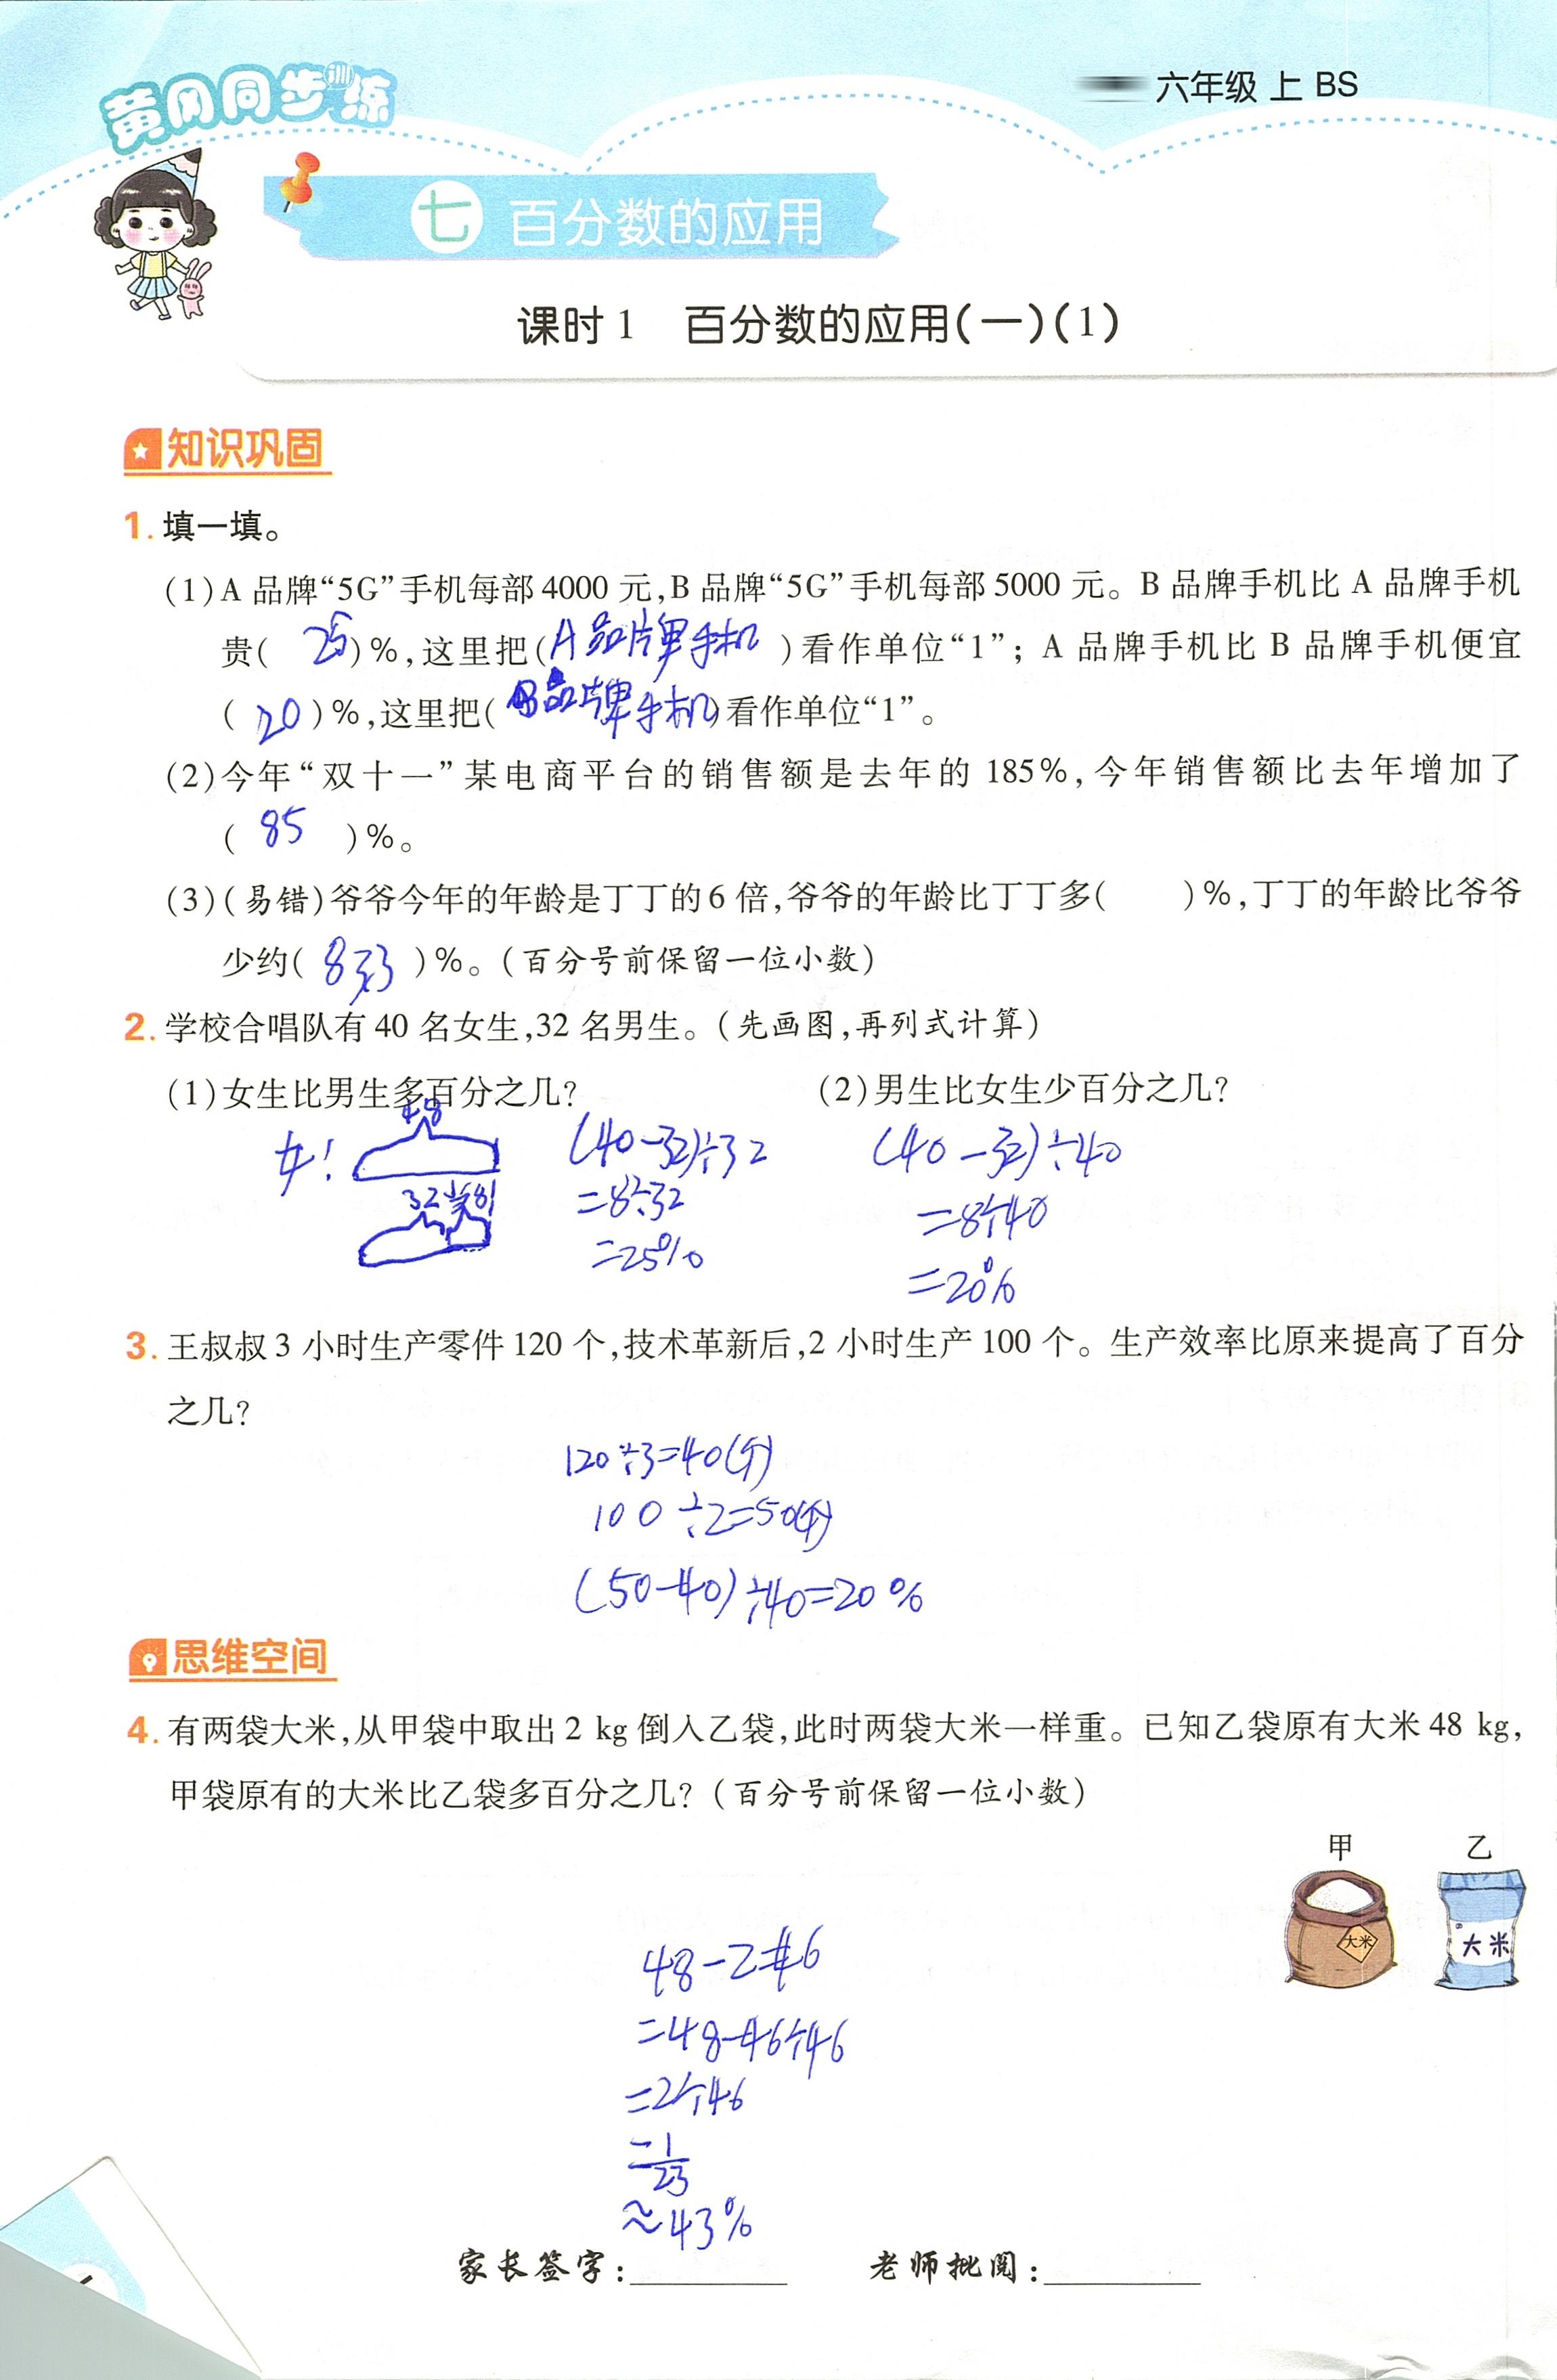 黄冈同步训练
六年级 上 BS
七 百分数的应用
课时1 百分数的应用(一)(1)
知识巩固
1. 填一填。
(1)A 品牌“5G”手机每部 4000 元,B 品牌“5G”手机每部 5000 元。B 品牌手机比 A 品牌手机
贵( 25 )%,这里把(A品牌手机)看作单位“1”;A 品牌手机比 B 品牌手机便宜
( 20 )%,这里把(B品牌手机)看作单位“1”。
(2)今年“双十一”某电商平台的销售额是去年的 185%,今年销售额比去年增加了
( 85 )%。
(3)(易错)爷爷今年的年龄是丁丁的 6 倍,爷爷的年龄比丁丁多( )%,丁丁的年龄比爷爷
少约( 83.3 )%。(百分号前保留一位小数)
2. 学校合唱队有 40 名女生,32 名男生。(先画图,再列式计算)
(1)女生比男生多百分之几? (2)男生比女生少百分之几?
48
女:
32
(40-32)÷32
=8÷32
=25%
(40-32)÷40
=8÷40
=20%
3. 王叔叔 3 小时生产零件 120 个,技术革新后,2 小时生产 100 个。生产效率比原来提高了百分
之几?
120÷3=40(个)
100÷2=50(个)
(50-40)÷40=20%
思维空间
4. 有两袋大米,从甲袋中取出 2 kg 倒入乙袋,此时两袋大米一样重。已知乙袋原有大米 48 kg,
甲袋原有的大米比乙袋多百分之几?(百分号前保留一位小数)
甲 乙
大米 大米
48-2=46
=48-46÷46
=2÷46
=1/23
≈43%
家长签字: 老师批阅: